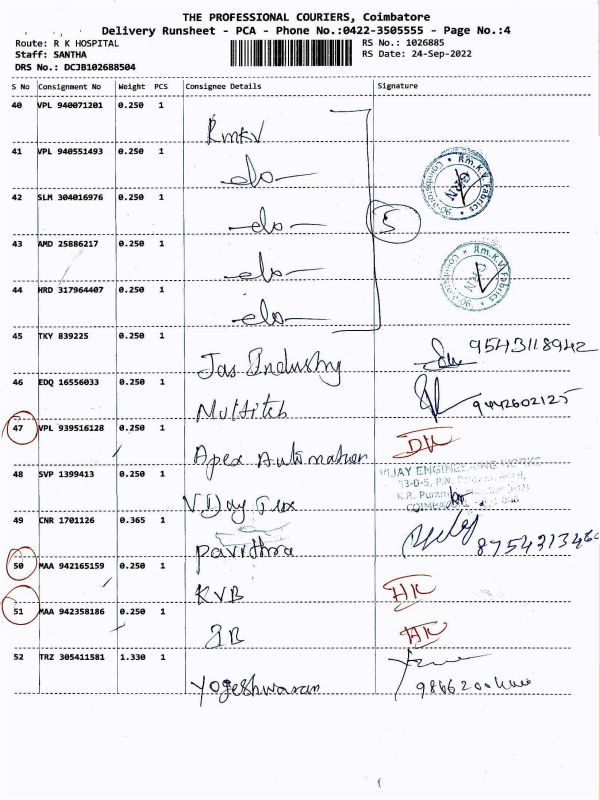 THE PROFESSIONAL COURIERS, Coimbatore
Delivery Runsheet - PCA - Phone No.:0422-3505555 - Page No.:4
Route: R K HOSPITAL
RS No.: 1026885
Staff: SANTHA
RS Date: 24-Sep-2022
DRS No.: DCJB102688504
S No Consignment No Weight PCS Consignee Details Signature
40 VPL 940071201 0.250 1
RmKV
41 VPL 940551493 0.250 1
-do-
Rm.K.V. Fabrics
42 SLM 304016976 0.250 1
-do-
5
43 AMD 25886217 0.250 1
-do-
Rm.K.V. Fabrics
44 HRD 317964407 0.250 1
-do-
45 TKY 839225 0.250 1
Jas Industry 9543118942
46 EDQ 16556033 0.250 1
Multitech 9442602125
47 VPL 939516128 0.250 1
Apex Automation DK
48 SVP 1399413 0.250 1
VIJAY ENGINEERING WORKS
VIJay Tex
49 CNR 1701126 0.365 1
Pavithra
50 MAA 942165159 0.250 1
KVB HK
51 MAA 942358186 0.250 1
IB HK
52 TRZ 305411581 1.330 1
Yogeshwaran